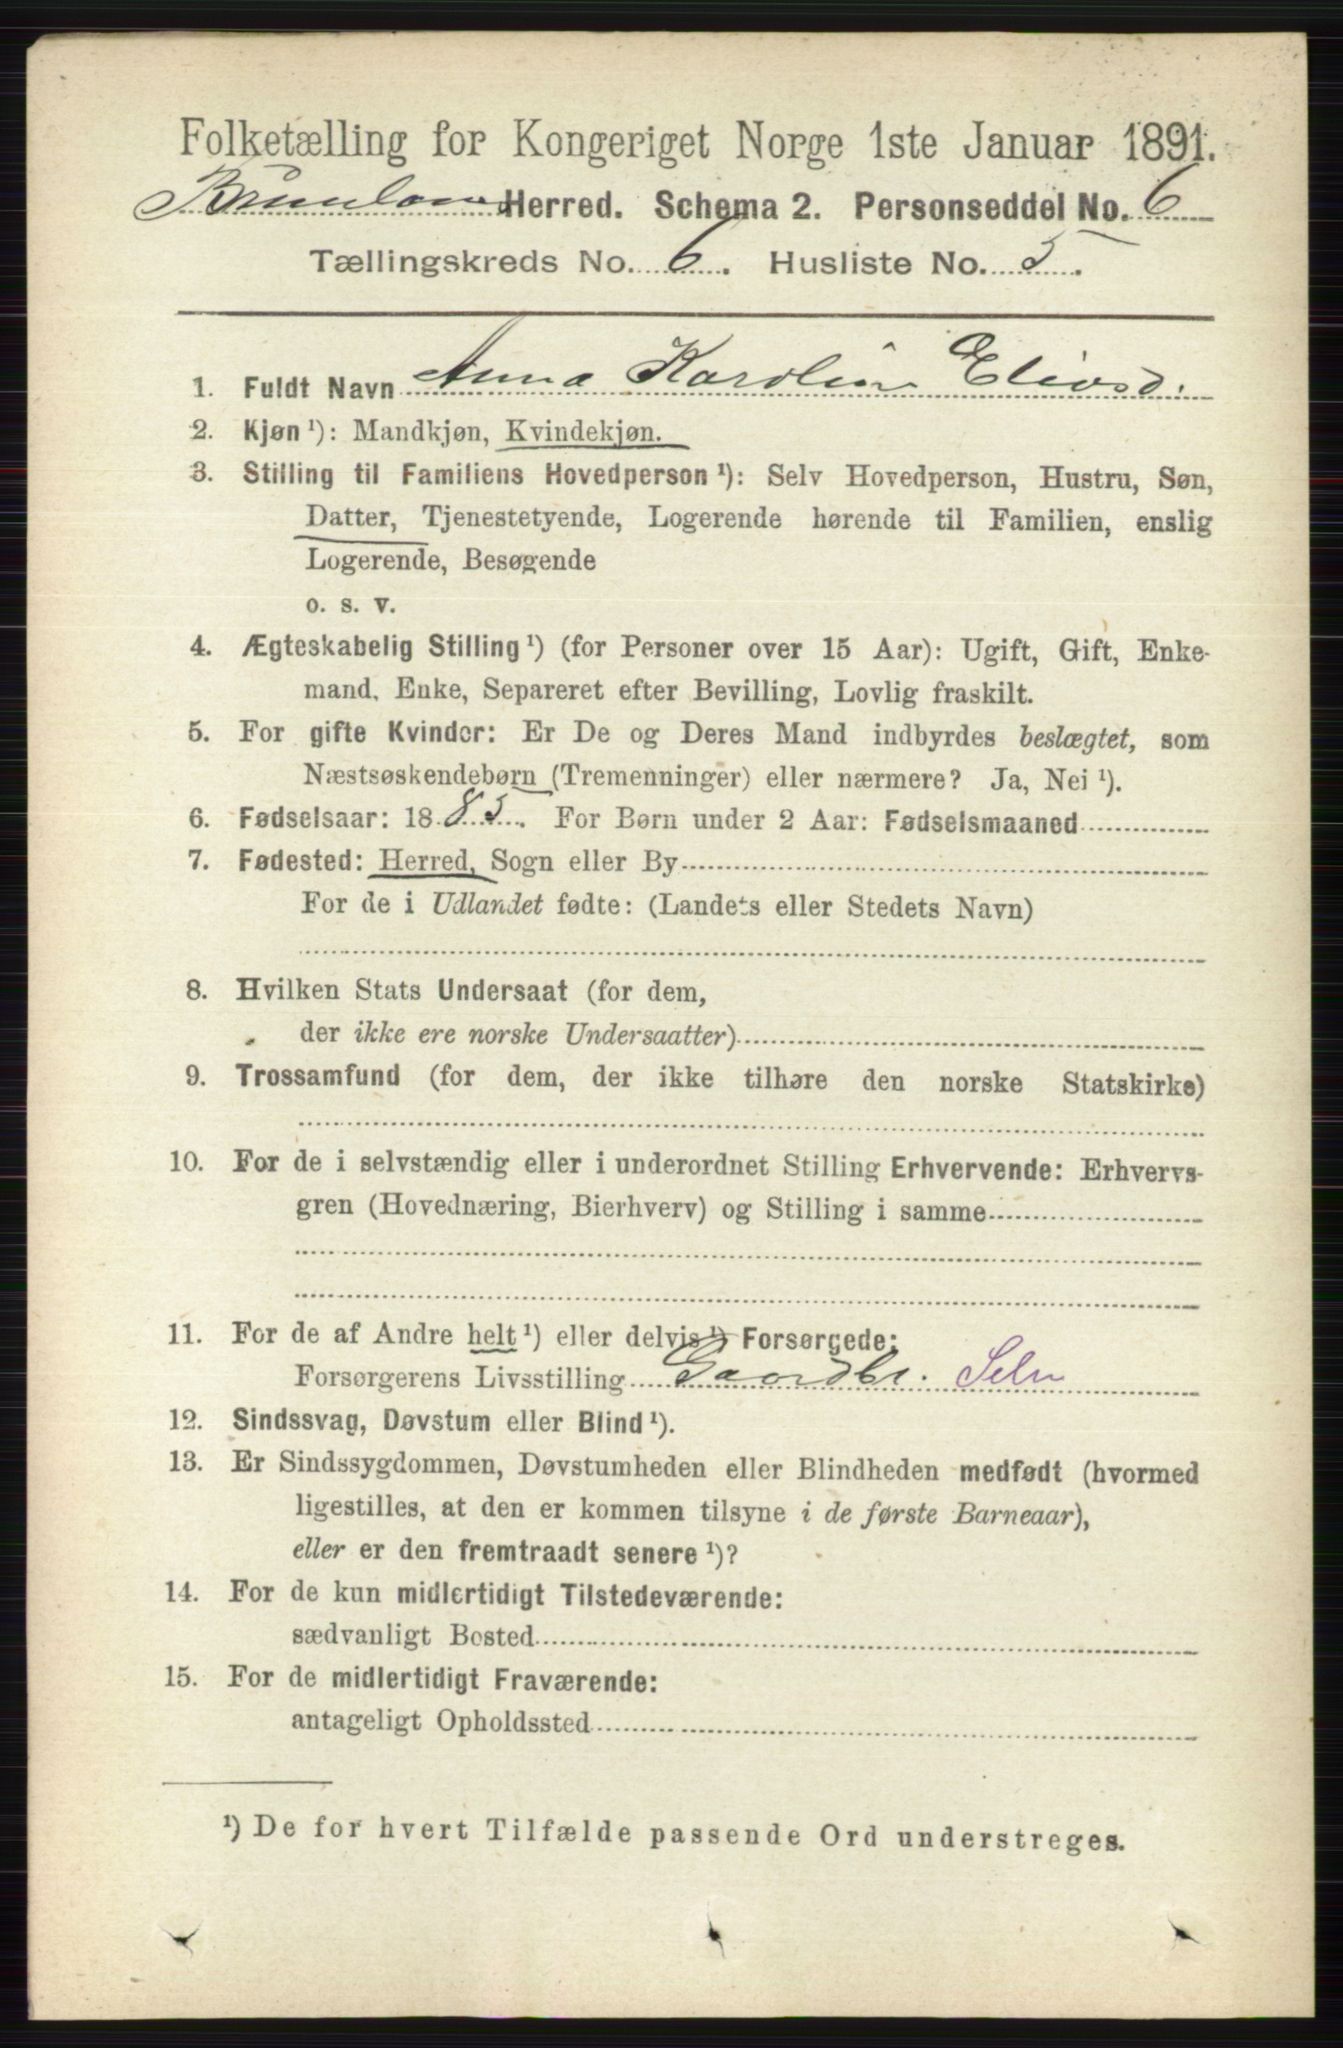 Folketælling for Kongeriget Norge 1ste Januar 1891.
Brunlanes Herred. Schema 2. Personseddel No. 6
Tællingskreds No. 6. Husliste No. 5.
1. Fuldt Navn Anna Karoline Elivsd.
2. Kjøn ¹): Mandkjøn, Kvindekjøn.
3. Stilling til Familiens Hovedperson ¹): Selv Hovedperson, Hustru, Søn,
Datter, Tjenestetyende, Logerende hørende til Familien, enslig
Logerende, Besøgende
o. s. v.
4. Ægteskabelig Stilling ¹) (for Personer over 15 Aar): Ugift, Gift, Enke-
mand, Enke, Separeret efter Bevilling, Lovlig fraskilt.
5. For gifte Kvinder: Er De og Deres Mand indbyrdes beslægtet, som
Næstsøskendebørn (Tremenninger) eller nærmere? Ja, Nei ¹).
6. Fødselsaar: 1885. For Børn under 2 Aar: Fødselsmaaned
7. Fødested: Herred, Sogn eller By
For de i Udlandet fødte: (Landets eller Stedets Navn)
8. Hvilken Stats Undersaat (for dem,
der ikke ere norske Undersaatter)
9. Trossamfund (for dem, der ikke tilhøre den norske Statskirke)
10. For de i selvstændig eller i underordnet Stilling Erhvervende: Erhvervs-
gren (Hovednæring, Bierhverv) og Stilling i samme
11. For de af Andre helt ¹) eller delvis ¹) Forsørgede:
Forsørgerens Livsstilling Gaardbr. Selv
12. Sindssvag, Døvstum eller Blind ¹).
13. Er Sindssygdommen, Døvstumheden eller Blindheden medfødt (hvormed
ligestilles, at den er kommen tilsyne i de første Barneaar),
eller er den fremtraadt senere ¹)?
14. For de kun midlertidigt Tilstedeværende:
sædvanligt Bosted
15. For de midlertidigt Fraværende:
antageligt Opholdssted
¹) De for hvert Tilfælde passende Ord understreges.